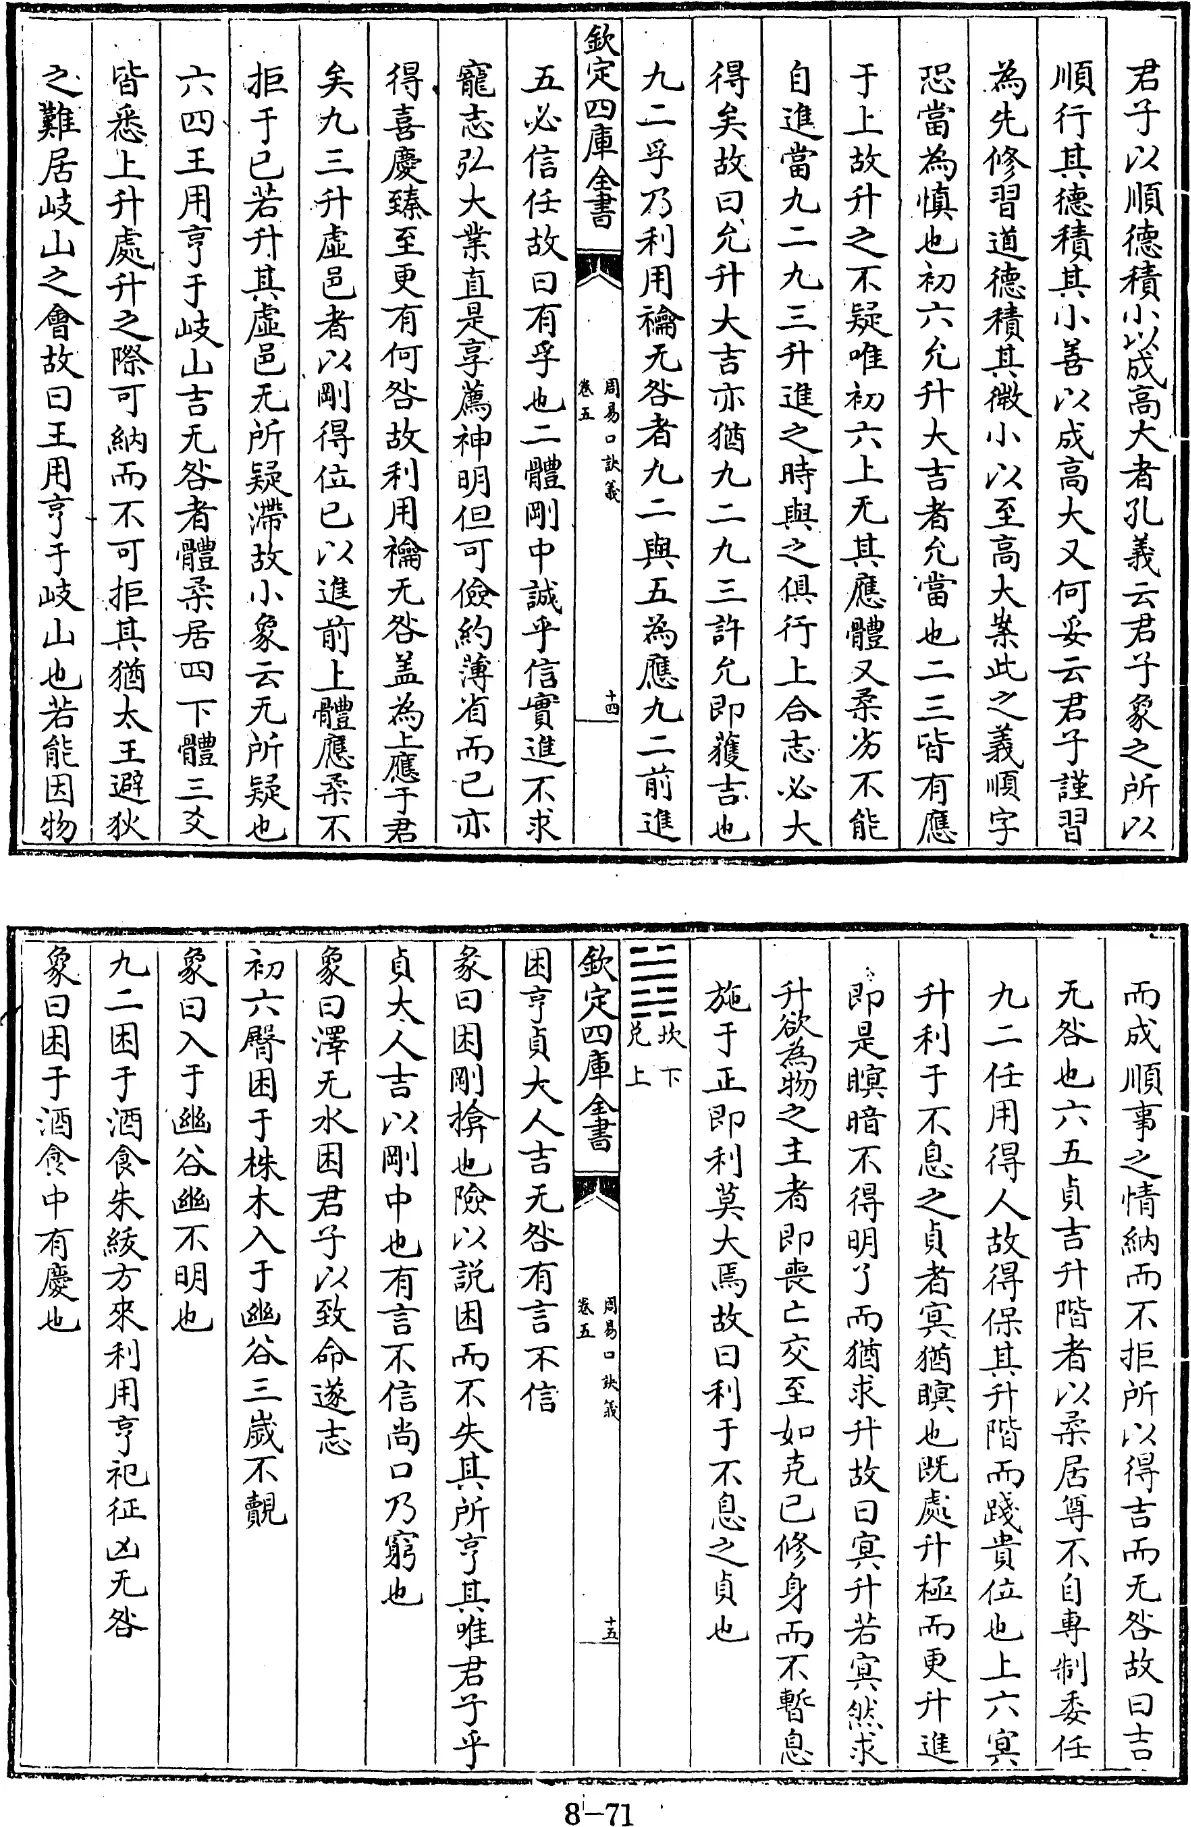 君子以順德積小以成高大者孔義云君子象之所以
順行其德積其小善以成高大又何妥云君子謹習
為先修習道德積其微小以至高大案此之義順字
恐當為慎也初六允升大吉者允當也二三皆有應
于上故升之不疑唯初六上无其應體又柔劣不能
自進當九二九三升進之時與之俱行上合志必大
得矣故曰允升大吉亦猶九二九三許允即獲吉也
九二孚乃利用禴无咎者九二與五為應九二前進
欽定四庫全書
周易口訣義
卷五
十四
五必信任故曰有孚也二體剛中誠乎信實進不求
寵志弘大業直是享薦神明但可儉約薄省而已亦
得喜慶臻至更有何咎故利用禴无咎盖為上應于君
矣九三升虛邑者以剛得位已以進前上體應柔不
拒于已若升其虛邑无所疑滯故小象云无所疑也
六四王用亨于岐山吉无咎者體柔居四下體三爻
皆悉上升處升之際可納而不可拒其猶太王避狄
之難居岐山之會故曰王用亨于岐山也若能因物
而成順事之情納而不拒所以得吉而无咎故曰吉
无咎也六五貞吉升階者以柔居尊不自專制委任
九二任用得人故得保其升階而踐貴位也上六冥
升利于不息之貞者冥猶瞑也既處升極而更升進
即是瞑暗不得明了而猶求升故曰冥升若冥然求
升欲為物之主者即喪亡交至如克已修身而不暫息
施于正即利莫大焉故曰利于不息之貞也
䷮ 坎下
兌上
欽定四庫全書
周易口訣義
卷五
十五
困亨貞大人吉无咎有言不信
彖曰困剛揜也險以説困而不失其所亨其唯君子乎
貞大人吉以剛中也有言不信尚口乃窮也
象曰澤无水困君子以致命遂志
初六臀困于株木入于幽谷三歲不覿
象曰入于幽谷幽不明也
九二困于酒食朱紱方來利用亨祀征凶无咎
象曰困于酒食中有慶也
8-71